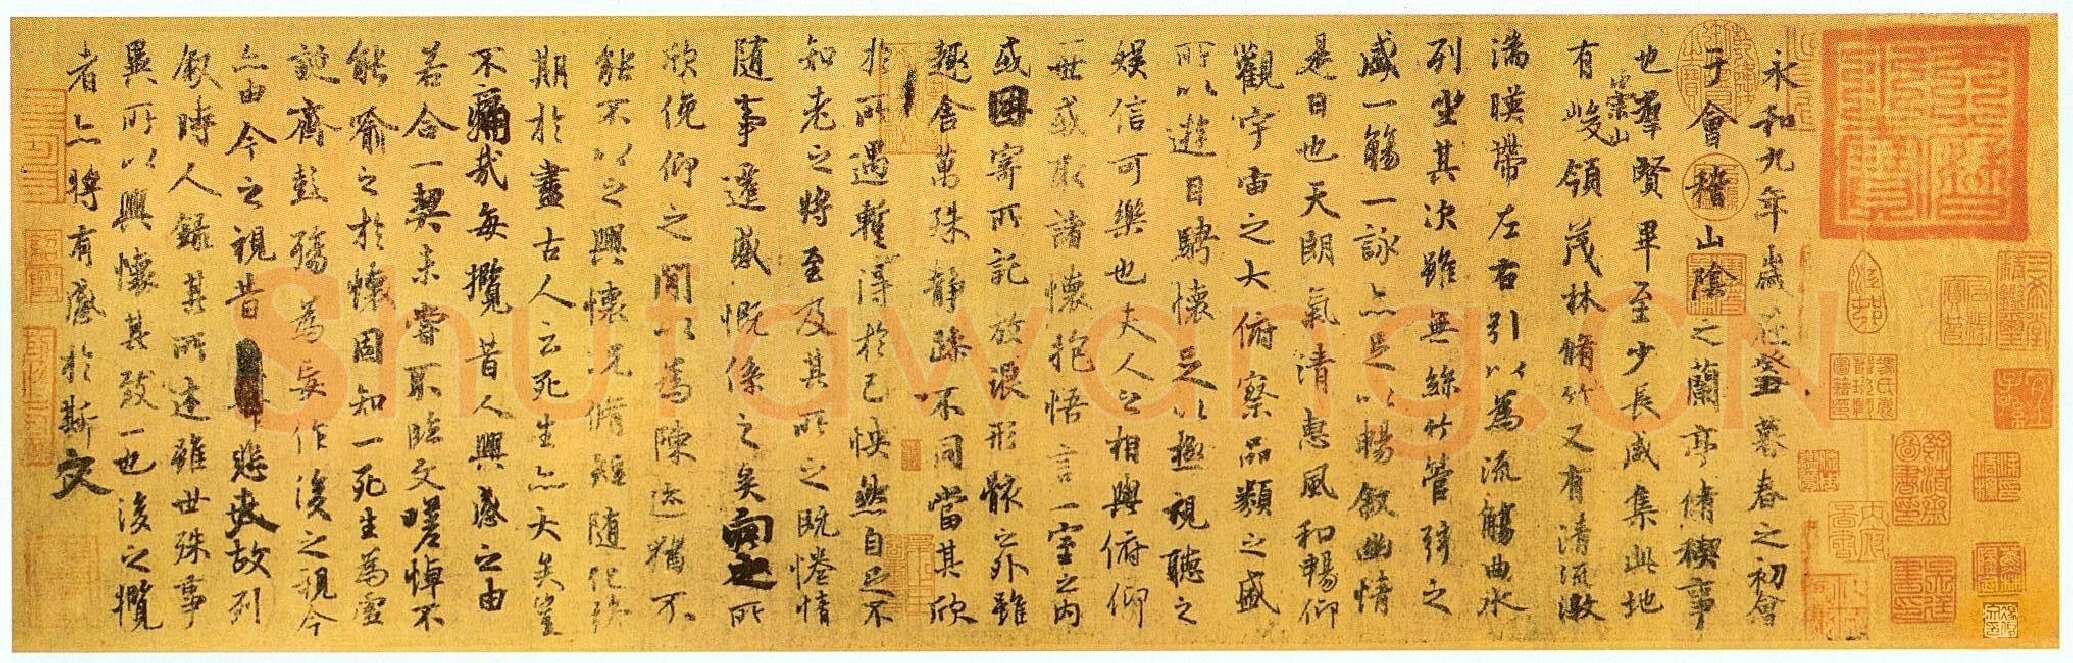 永和九年歲在癸丑暮春之初會
于會稽山陰之蘭亭脩稧事
也羣賢畢至少長咸集此地
有崇山峻領茂林脩竹又有清流激
湍暎帶左右引以為流觴曲水
列坐其次雖無絲竹管弦之
盛一觴一詠亦足以暢敘幽情
是日也天朗氣清惠風和暢仰
觀宇宙之大俯察品類之盛
所以遊目騁懷足以極視聽之
娛信可樂也夫人之相與俯仰
一世或取諸懷抱悟言一室之內
或因寄所託放浪形骸之外雖
趣舍萬殊靜躁不同當其欣
於所遇暫得於己怏然自足不
知老之將至及其所之既惓情
隨事遷感慨係之矣向之所
欣俛仰之閒以為陳迹猶不
能不以之興懷況脩短隨化終
期於盡古人云死生亦大矣豈
不痛哉每攬昔人興感之由
若合一契未嘗不臨文嗟悼不
能喻之於懷固知一死生為虛
誕齊彭殤為妄作後之視今
亦由今之視昔悲夫故列
敘時人錄其所述雖世殊事
異所以興懷其致一也後之攬
者亦將有感於斯文
紹興
Shufawang.CN